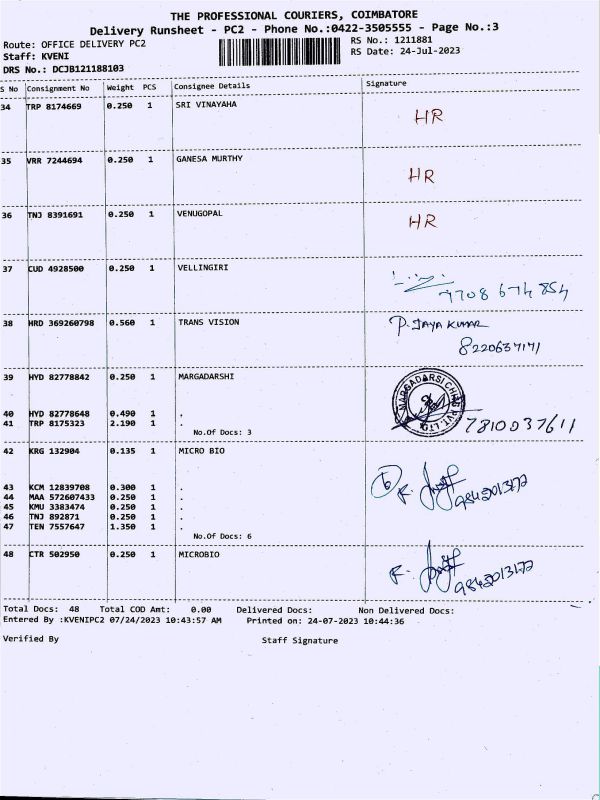 THE PROFESSIONAL COURIERS, COIMBATORE
Delivery Runsheet - PC2 - Phone No.:0422-3505555 - Page No.:3
Route: OFFICE DELIVERY PC2 RS No.: 1211881
Staff: KVENI RS Date: 24-Jul-2023
DRS No.: DCJB121188103
S No Consignment No Weight PCS Consignee Details Signature
34 TRP 8174669 0.250 1 SRI VINAYAHA HR
35 VRR 7244694 0.250 1 GANESA MURTHY HR
36 TNJ 8391691 0.250 1 VENUGOPAL HR
37 CUD 4928500 0.250 1 VELLINGIRI
7708 674 854
38 HRD 369260798 0.560 1 TRANS VISION P. JAYA KUMAR
8220637171
39 HYD 82778842 0.250 1 MARGADARSHI MARGADARSI CHITS PVT. LTD.
40 HYD 82778648 0.490 1 7810037611
41 TRP 8175323 2.190 1
No.Of Docs: 3
42 KRG 132904 0.135 1 MICRO BIO
43 KCM 12839708 0.300 1 . 6 9842013172
44 MAA 572607433 0.250 1 .
45 KMU 3383474 0.250 1 .
46 TNJ 892871 0.250 1 .
47 TEN 7557647 1.350 1 .
No.Of Docs: 6
48 CTR 502950 0.250 1 MICROBIO 9842013172
Total Docs: 48 Total COD Amt: 0.00 Delivered Docs: Non Delivered Docs:
Entered By :KVENIPC2 07/24/2023 10:43:57 AM Printed on: 24-07-2023 10:44:36
Verified By Staff Signature